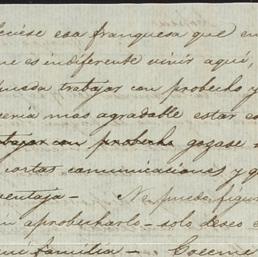 esa franquesa que en
me es indiferente vivir aquí,
trabajar con probecho y
seria mas agradable estar es
trabajar con probecho gozase
cortas comunicaciones y q
ventaja - No puedo figur
aprobecharlo - solo deseo
mi familia - Goeme